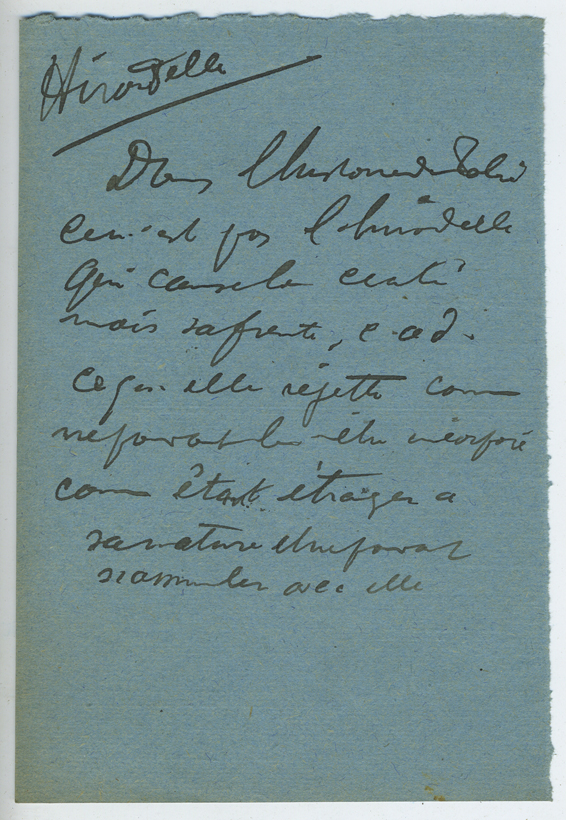 Hirondelle
Dans l'histoire de Tobie
ce n'est pas l'hirondelle
qui causa la cécité
mais sa fiente, c-a-d.
ce qu'elle rejette comme
ne pouvant lui être incorporé
comme étant étranger a
sa nature et ne pouvant
s'assimiler avec elle